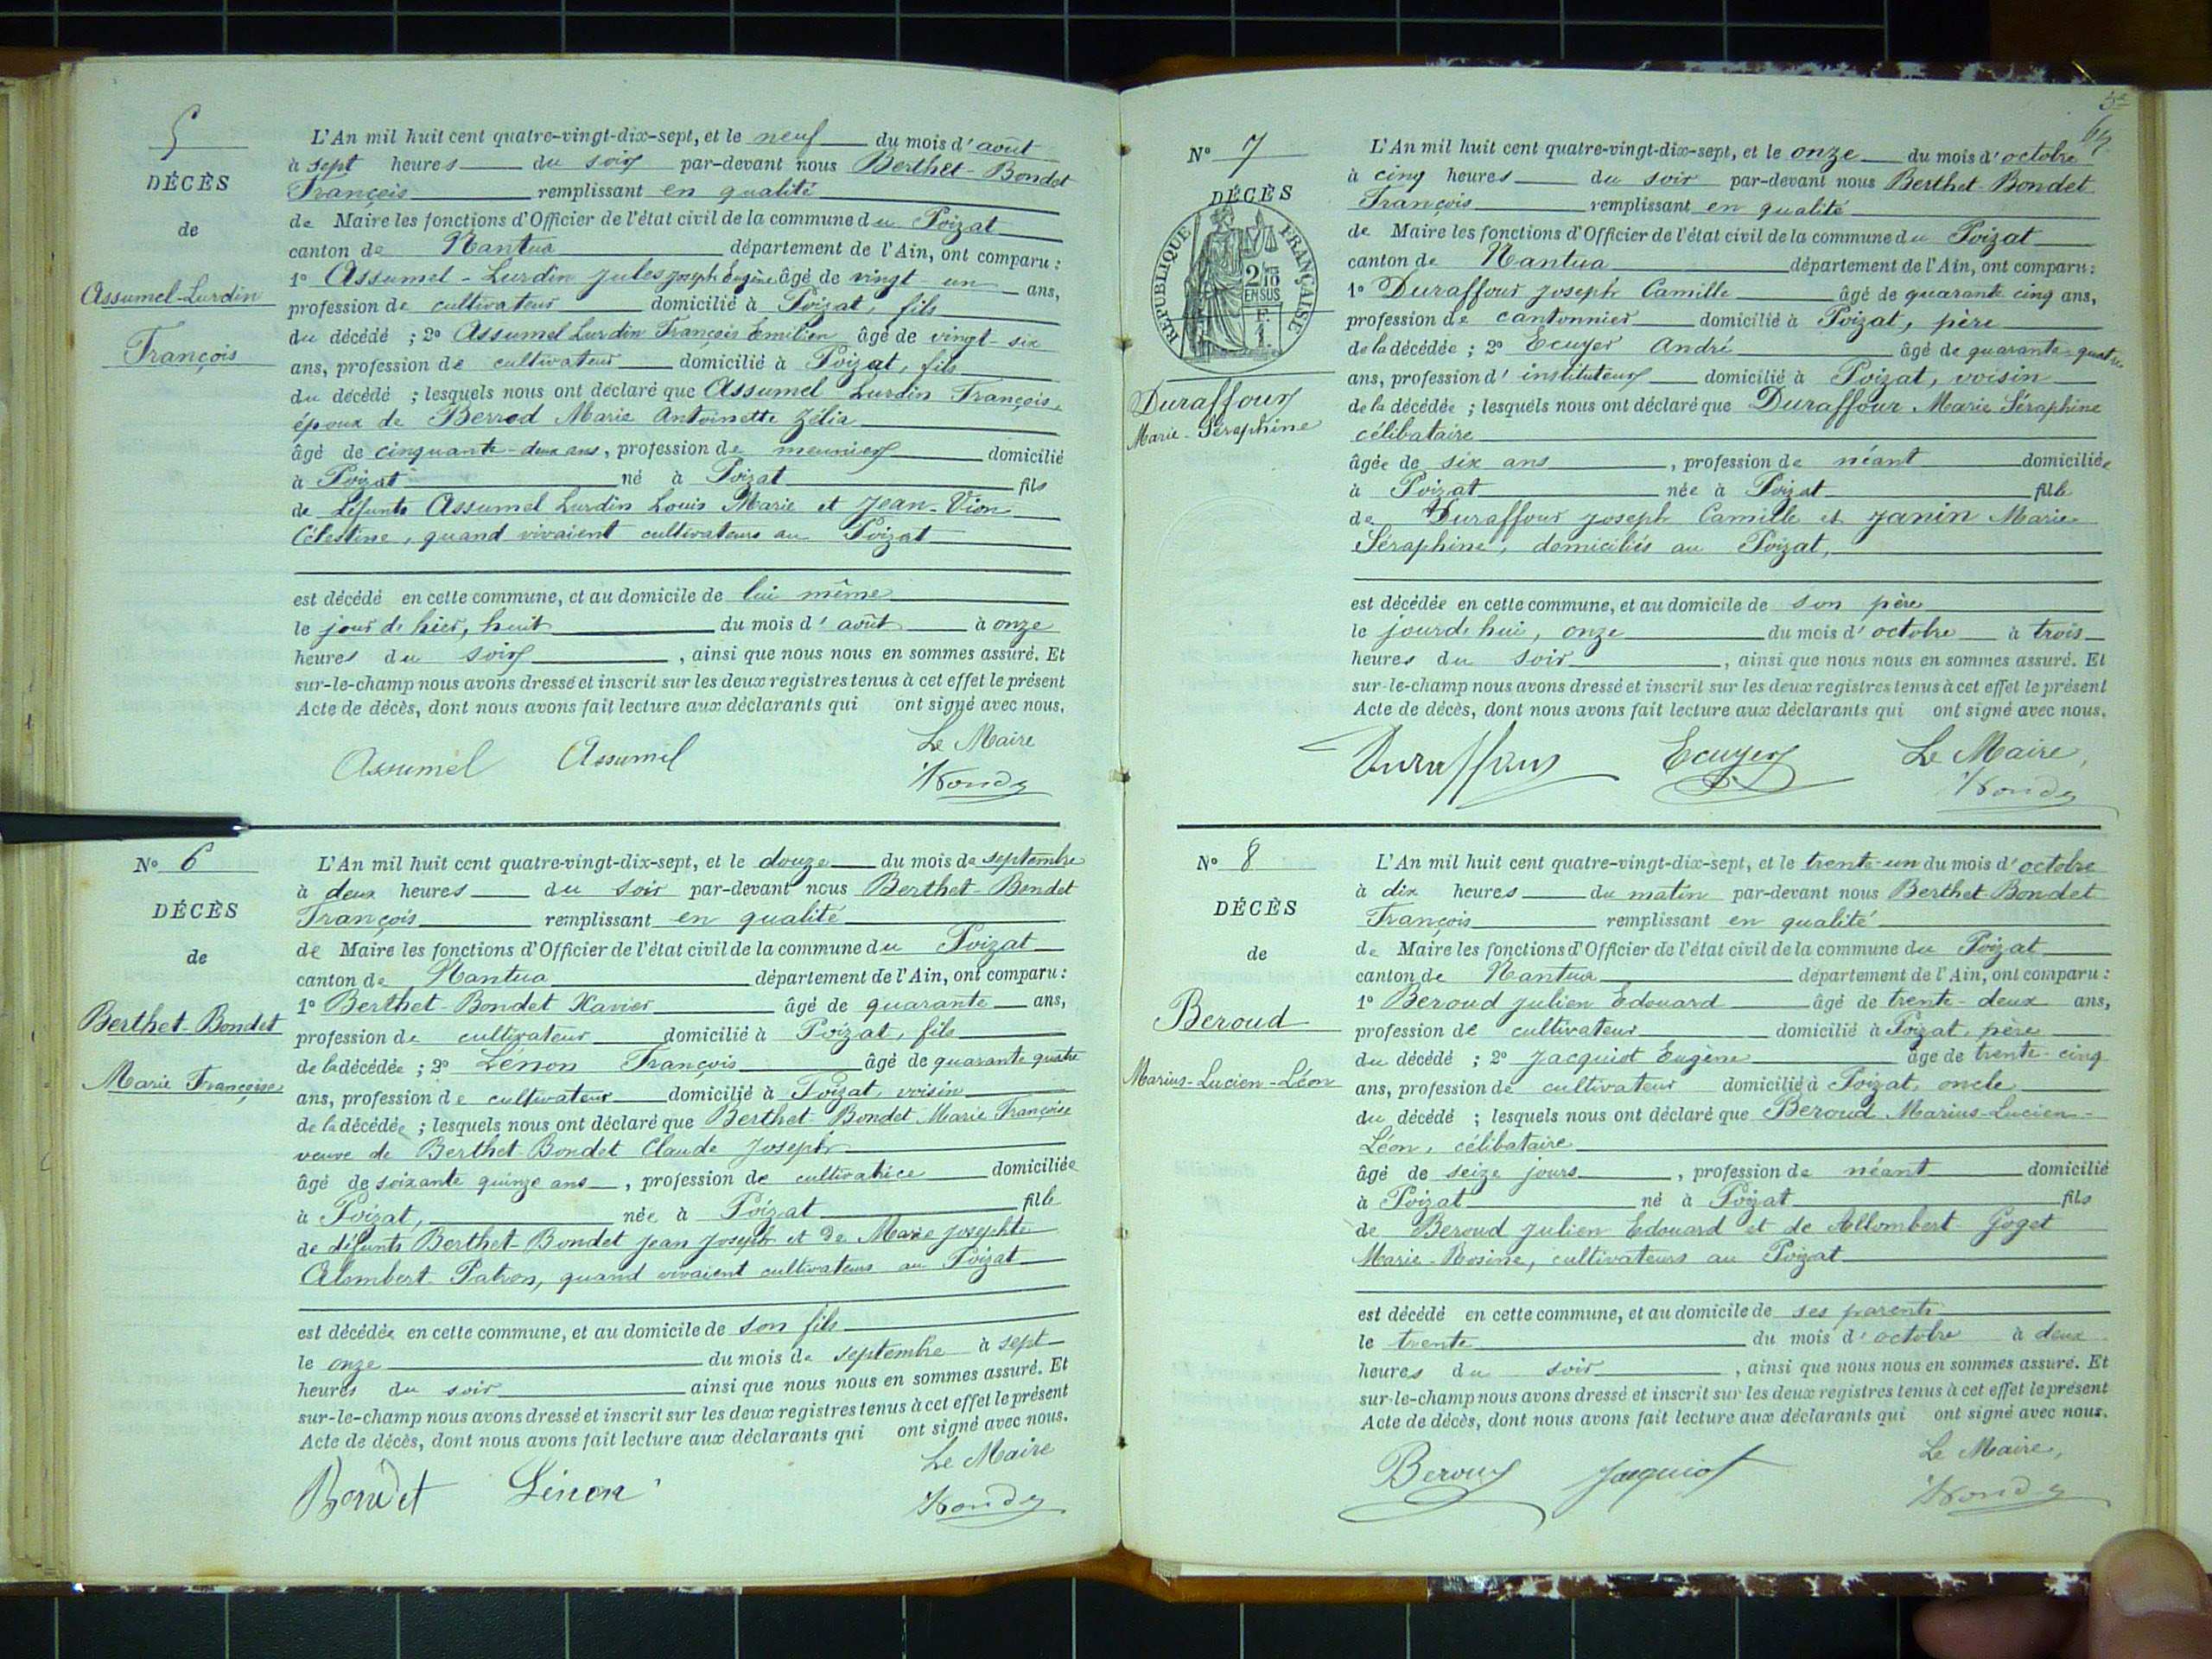 5
DÉCÈS
de
Assumel-Lurdin
François
L'An mil huit cent quatre-vingt-dix-sept, et le neuf du mois d'août
à sept heures du soir par-devant nous Berthet-Bondet
François remplissant en qualité
de Maire les fonctions d'Officier de l'état civil de la commune du Poizat
canton de Nantua département de l'Ain, ont comparu :
1º Assumel-Lurdin Jules Joseph Eugène âgé de vingt un ans,
profession de cultivateur domicilié à Poizat, fils
du décédé ; 2º Assumel Lurdin François Emilien âgé de vingt-six
ans, profession de cultivateur domicilié à Poizat, fils
du décédé ; lesquels nous ont déclaré que Assumel Lurdin François,
époux de Berrod Marie Antoinette Zélia
âgé de cinquante-deux ans, profession de meunier domicilié
à Poizat né à Poizat fils
de défunts Assumel Lurdin Louis Marie et Jean-Vion
Célestine, quand vivaient cultivateurs au Poizat
est décédé en cette commune, et au domicile de lui même
le jour de hier, huit du mois d'août à onze
heures du soir, ainsi que nous nous en sommes assuré. Et
sur-le-champ nous avons dressé et inscrit sur les deux registres tenus à cet effet le présent
Acte de décès, dont nous avons fait lecture aux déclarants qui ont signé avec nous.
Assumel Assumel Le Maire
Nº 6
DÉCÈS
de
Berthet-Bondet
Marie Françoise
L'An mil huit cent quatre-vingt-dix-sept, et le douze du mois de septembre
à deux heures du soir par-devant nous Berthet-Bondet
François remplissant en qualité
de Maire les fonctions d'Officier de l'état civil de la commune du Poizat
canton de Nantua département de l'Ain, ont comparu :
1º Berthet-Bondet Xavier âgé de quarante ans,
profession de cultivateur domicilié à Poizat, fils
de la décédée ; 2º Lénon François âgé de quarante quatre
ans, profession de cultivateur domicilié à Poizat, voisin
de la décédée ; lesquels nous ont déclaré que Berthet-Bondet Marie Françoise
veuve de Berthet-Bondet Claude Joseph
âgé de soixante quinze ans, profession de cultivatrice domiciliée
à Poizat, née à Poizat fille
de défunts Berthet-Bondet Jean Joseph et de Marie Josephte
Alombert Patron, quand vivaient cultivateurs au Poizat
est décédée en cette commune, et au domicile de son fils
le onze du mois de septembre à sept
heures du soir ainsi que nous nous en sommes assuré. Et
sur-le-champ nous avons dressé et inscrit sur les deux registres tenus à cet effet le présent
Acte de décès, dont nous avons fait lecture aux déclarants qui ont signé avec nous.
Bondet Lénon Le Maire
Nº 7
DÉCÈS
RÉPUBLIQUE FRANÇAISE
2/10 EN SUS
Duraffour
Marie-Séraphine
L'An mil huit cent quatre-vingt-dix-sept, et le onze du mois d'octobre
à cinq heures du soir par-devant nous Berthet-Bondet
François remplissant en qualité
de Maire les fonctions d'Officier de l'état civil de la commune du Poizat
canton de Nantua département de l'Ain, ont comparu :
1º Duraffour Joseph Camille âgé de quarante cinq ans,
profession de cantonnier domicilié à Poizat, père
de la décédée ; 2º Ecuyer André âgé de quarante-quatre
ans, profession d'instituteur domicilié à Poizat, voisin
de la décédée ; lesquels nous ont déclaré que Duraffour Marie Séraphine
célibataire
âgée de six ans, profession de néant domiciliée
à Poizat née à Poizat fille
de Duraffour Joseph Camille et Janin Marie
Séraphine, domiciliés au Poizat,
est décédée en cette commune, et au domicile de son père
le jourdehui, onze du mois d'octobre à trois
heures du soir, ainsi que nous nous en sommes assuré. Et
sur-le-champ nous avons dressé et inscrit sur les deux registres tenus à cet effet le présent
Acte de décès, dont nous avons fait lecture aux déclarants qui ont signé avec nous.
Duraffour Ecuyer Le Maire,
Nº 8
DÉCÈS
de
Beroud
Marius-Lucien-Léon
L'An mil huit cent quatre-vingt-dix-sept, et le trente-un du mois d'octobre
à dix heures du matin par-devant nous Berthet Bondet
François remplissant en qualité
de Maire les fonctions d'Officier de l'état civil de la commune du Poizat
canton de Nantua département de l'Ain, ont comparu :
1º Beroud Julien Edouard âgé de trente-deux ans,
profession de cultivateur domicilié à Poizat, père
du décédé ; 2º Jacquiot Eugène âgé de trente-cinq
ans, profession de cultivateur domicilié à Poizat, oncle
du décédé ; lesquels nous ont déclaré que Beroud Marius-Lucien-
Léon, célibataire
âgé de seize jours, profession de néant domicilié
à Poizat né à Poizat fils
de Beroud Julien Edouard et de Allombert Goget
Marie-Rosine, cultivateurs au Poizat
est décédé en cette commune, et au domicile de ses parents
le trente du mois d'octobre à deux
heures du soir, ainsi que nous nous en sommes assuré. Et
sur-le-champ nous avons dressé et inscrit sur les deux registres tenus à cet effet le présent
Acte de décès, dont nous avons fait lecture aux déclarants qui ont signé avec nous.
Beroud Jacquiot Le Maire,